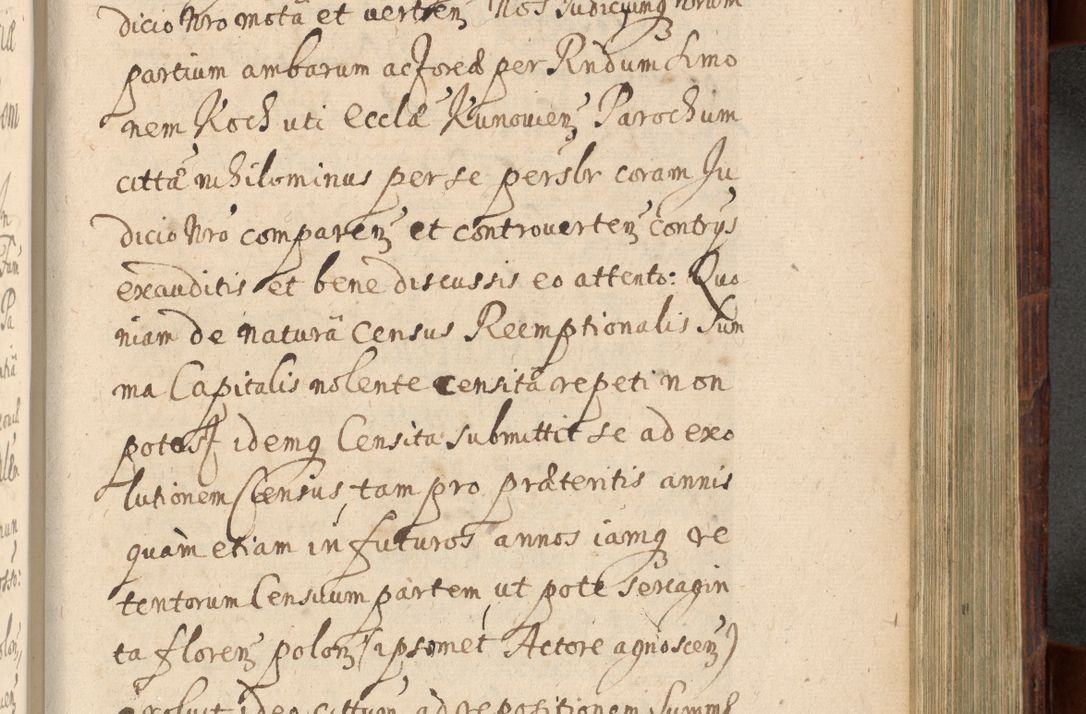 dicio Nro motã et verten Nos Judiciumq nrum
partium ambarum actorea per Rndum Simo
nem Koch uti Ecclæ Kunovien Parochum
cittã nihilominus per se persblr coram Ju
dicio Nro comparen et controverten contrys
exauditis et bene discussis eo attento: Quo
niam de naturã Census Reemptionalis Sum
ma Capitalis nolente censitã repeti non
potest idemq Censita submittit se ad exo
lutionem Census, tam pro præteritis annis
quàm etiam in futuros annos iamq re
tentorum Censuum partem, ut pote Sexagin
ta floren polon (ipsomet Actore agnoscen)
exoluit ideo cittum ad repositionem Summæ